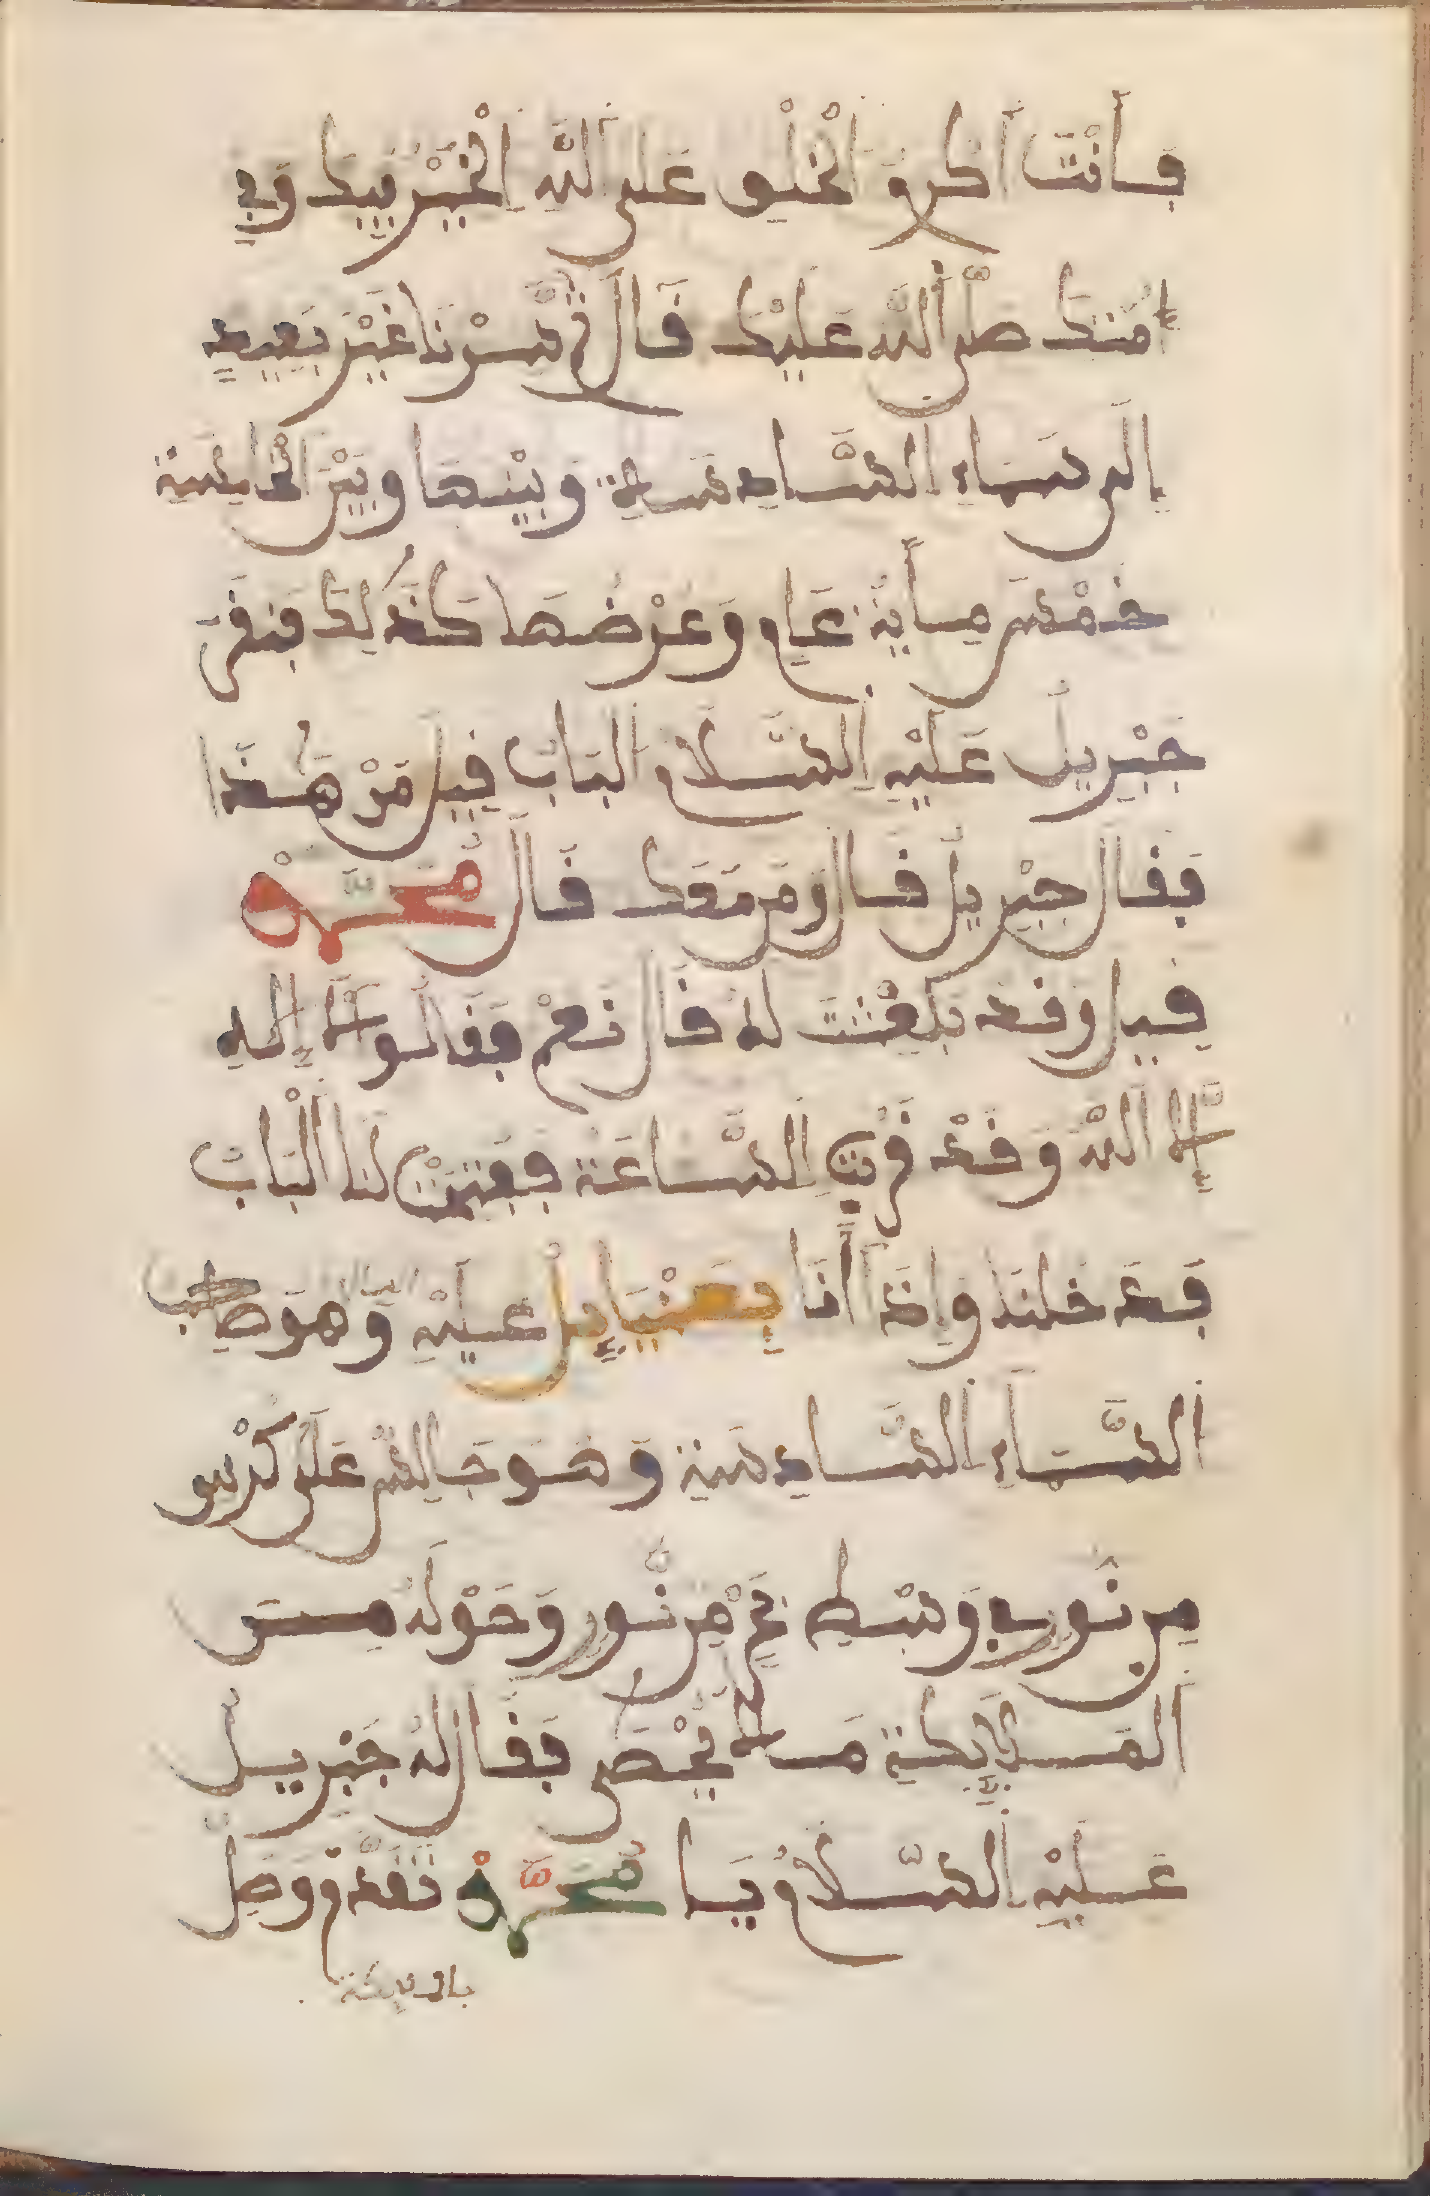 فأنت أكرم الخلق على الله الخير فيك وفي
أمتك صلى الله عليك قال ثم سرنا غير بعيد
إلى سماء السادسة وبينها وبين الخامسة
خمس مأية عام وعرضها كذلك فنقر
جبريل عليه السلام الباب قيل من هذا
فقال جبريل قال ومن معك قال محمد
قيل وقد بعثت له قال نعم فقالوا لا إله
إلا الله وقد قربت الساعة ففتحت لنا الباب
فدخلنا وإذا أنا عليه وهو صاحب
السماء السادسة وهو جالس على كرسي
من نور في وسطه من نور وحوله من
الملائكة ما لا يحصى فقال له جبريل
عليه السلام يا محمد تقدم وصل
بالملائكة